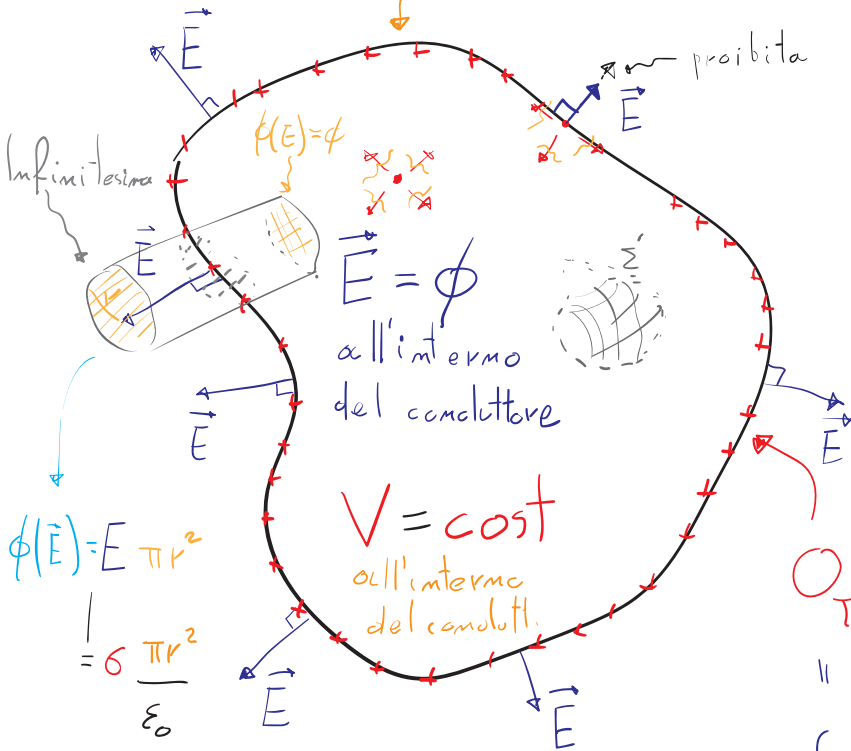 E
proibita
E
ϕ(E)=ϕ
Infinitesima
E
E = ϕ
Σ
all'interno
del conduttore
E
E
V = cost
ϕ(E) = E πr²
all'interno
del condutt.
= σ πr²
ε₀
E
E